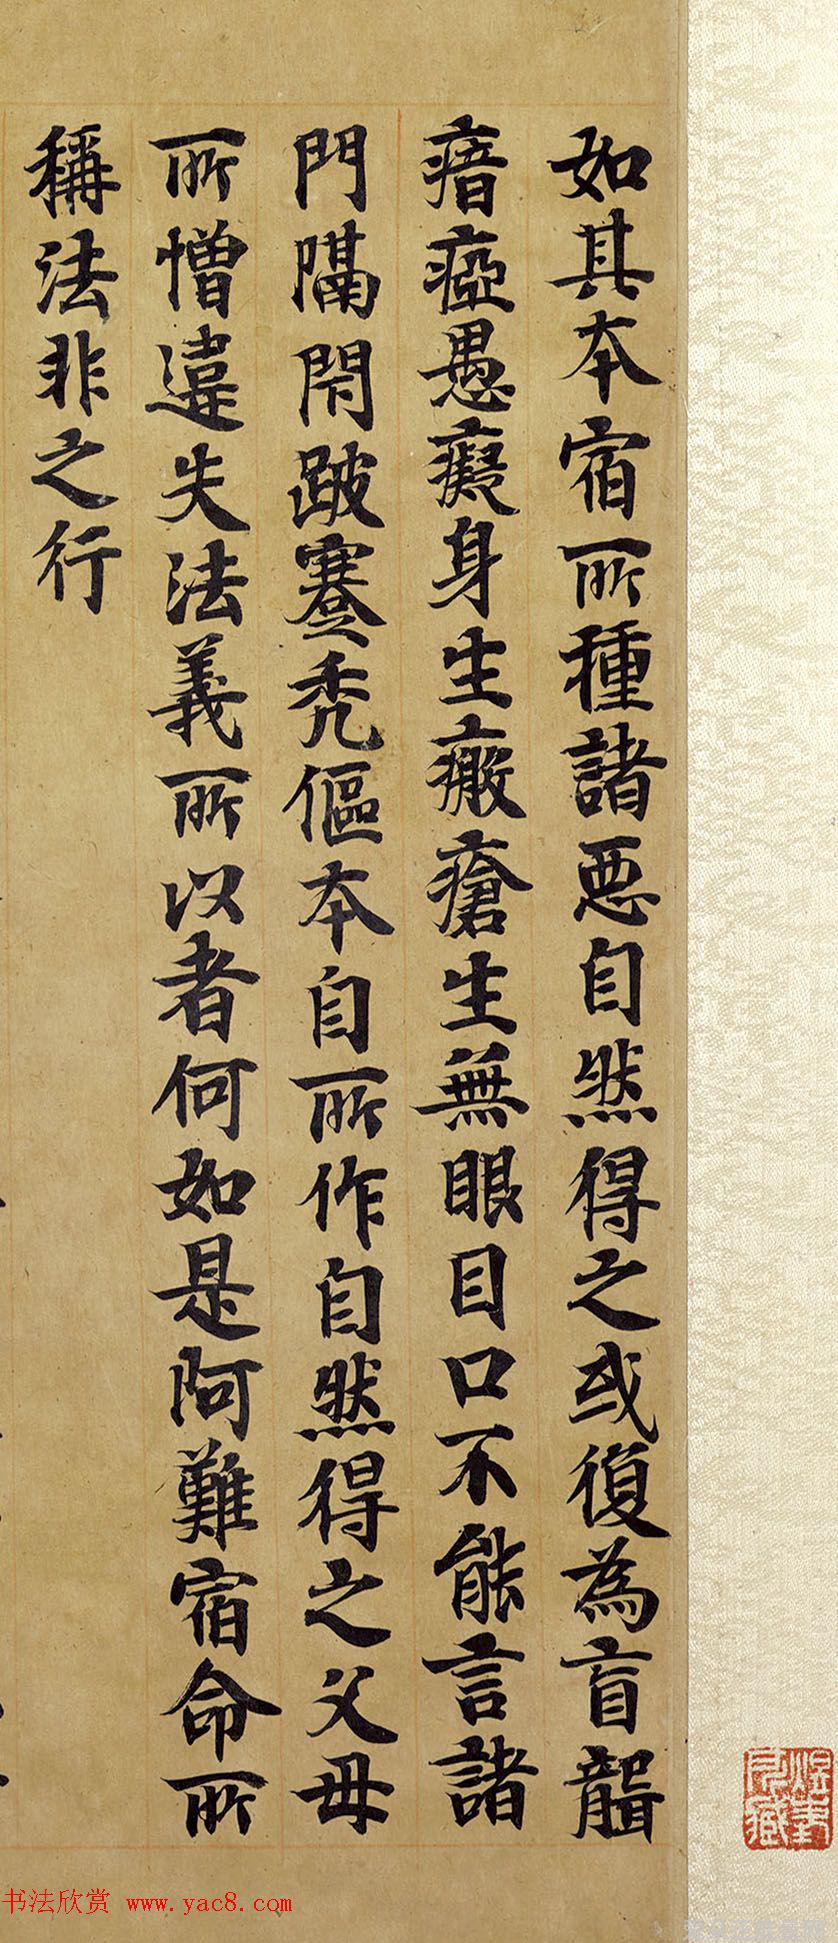 如其本宿所種諸惡自然得之或復為盲聾
瘖瘂愚癡身生癜瘡生無眼目口不能言諸
門隔閇跛蹇禿傴本自所作自然得之父母
所憎違失法義所以者何如是阿難宿命所
稱法非之行
书法欣赏 www.yac8.com